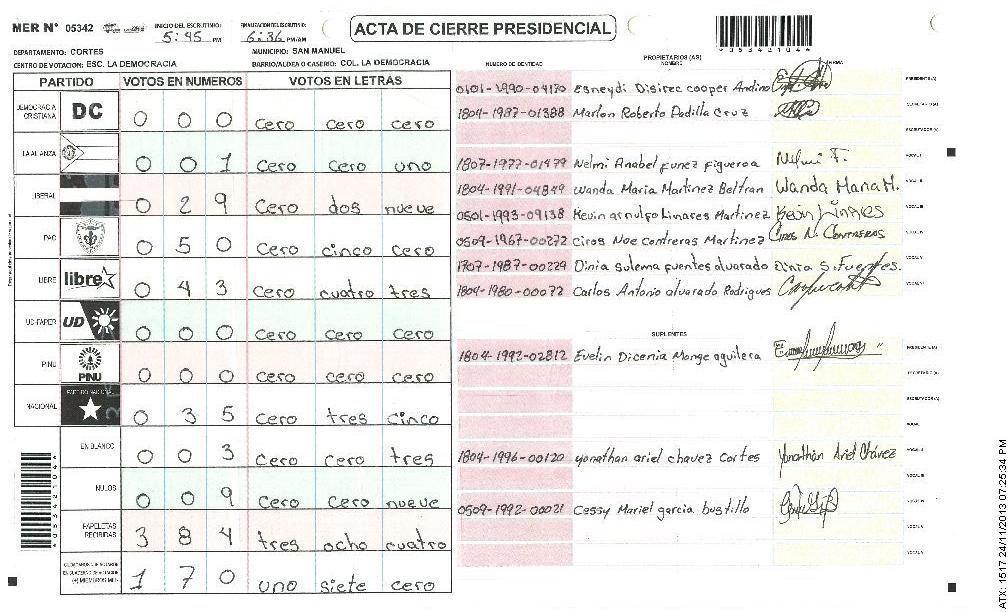 MER N° 05342 INICIO DEL ESCRUTINIO: 5:45 PM FINALIZACION DEL ESCRUTINIO: 6:36 PM/AM
ACTA DE CIERRE PRESIDENCIAL
953421044
DEPARTAMENTO: CORTES MUNICIPIO: SAN MANUEL
CENTRO DE VOTACION: ESC. LA DEMOCRACIA BARRIO/ALDEA O CASERIO: COL. LA DEMOCRACIA
PARTIDO VOTOS EN NUMEROS VOTOS EN LETRAS
DEMOCRACIA CRISTIANA DC 0 0 0 cero cero cero
LA ALIANZA 0 0 1 cero cero uno
LIBERAL 0 2 9 cero dos nueve
PAC 0 5 0 cero cinco cero
LIBRE libre 0 4 3 cero cuatro tres
UD-FAPER UD 0 0 0 cero cero cero
PINU PINU 0 0 0 cero cero cero
NACIONAL PARTIDO NACIONAL 0 3 5 cero tres cinco
EN BLANCO 0 0 3 cero cero tres
NULOS 0 0 9 cero cero nueve
PAPELETAS RECIBIDAS 3 8 4 tres ocho cuatro
1 7 0 uno siete cero
NUMERO DE IDENTIDAD PROPIETARIOS (AS) NOMBRE FIRMA
0101-1990-04170 Esneydi Disirec cooper Andino PRESIDENTE (A)
1804-1987-01388 Marlon Roberto Padilla Cruz SECRETARIO (A)
ESCRUTADOR (A)
1807-1977-01479 Nelmi Anabel funez figueroa Nelmi F. VOCAL I
1804-1991-04849 Wanda Maria Martinez Beltran Wanda Maria M. VOCAL II
0501-1993-09138 Kevin arnulfo Linares Martinez Kevin Linares VOCAL III
0509-1967-00272 Ciros Noe contreras Martinez Ciros N. Contreras VOCAL IV
1707-1987-00229 Dinia sulema fuentes alvarado Dinia S. Fuentes. VOCAL V
1804-1980-00072 Carlos Antonio alvarado Rodrigues VOCAL VI
SUPLENTES
1804-1992-02812 Evelin Dicenia Monge aguilera PRESIDENTE (A)
SECRETARIO (A)
ESCRUTADOR (A)
VOCAL I
1804-1996-00120 yonathan ariel chavez Cortes Yonathan Ariel Chávez VOCAL II
VOCAL III
0509-1992-00021 Cessy Mariel garcia bustillo VOCAL IV
VOCAL V
VOCAL VI
ATX: 1517 24/11/2013 07:25:34 PM